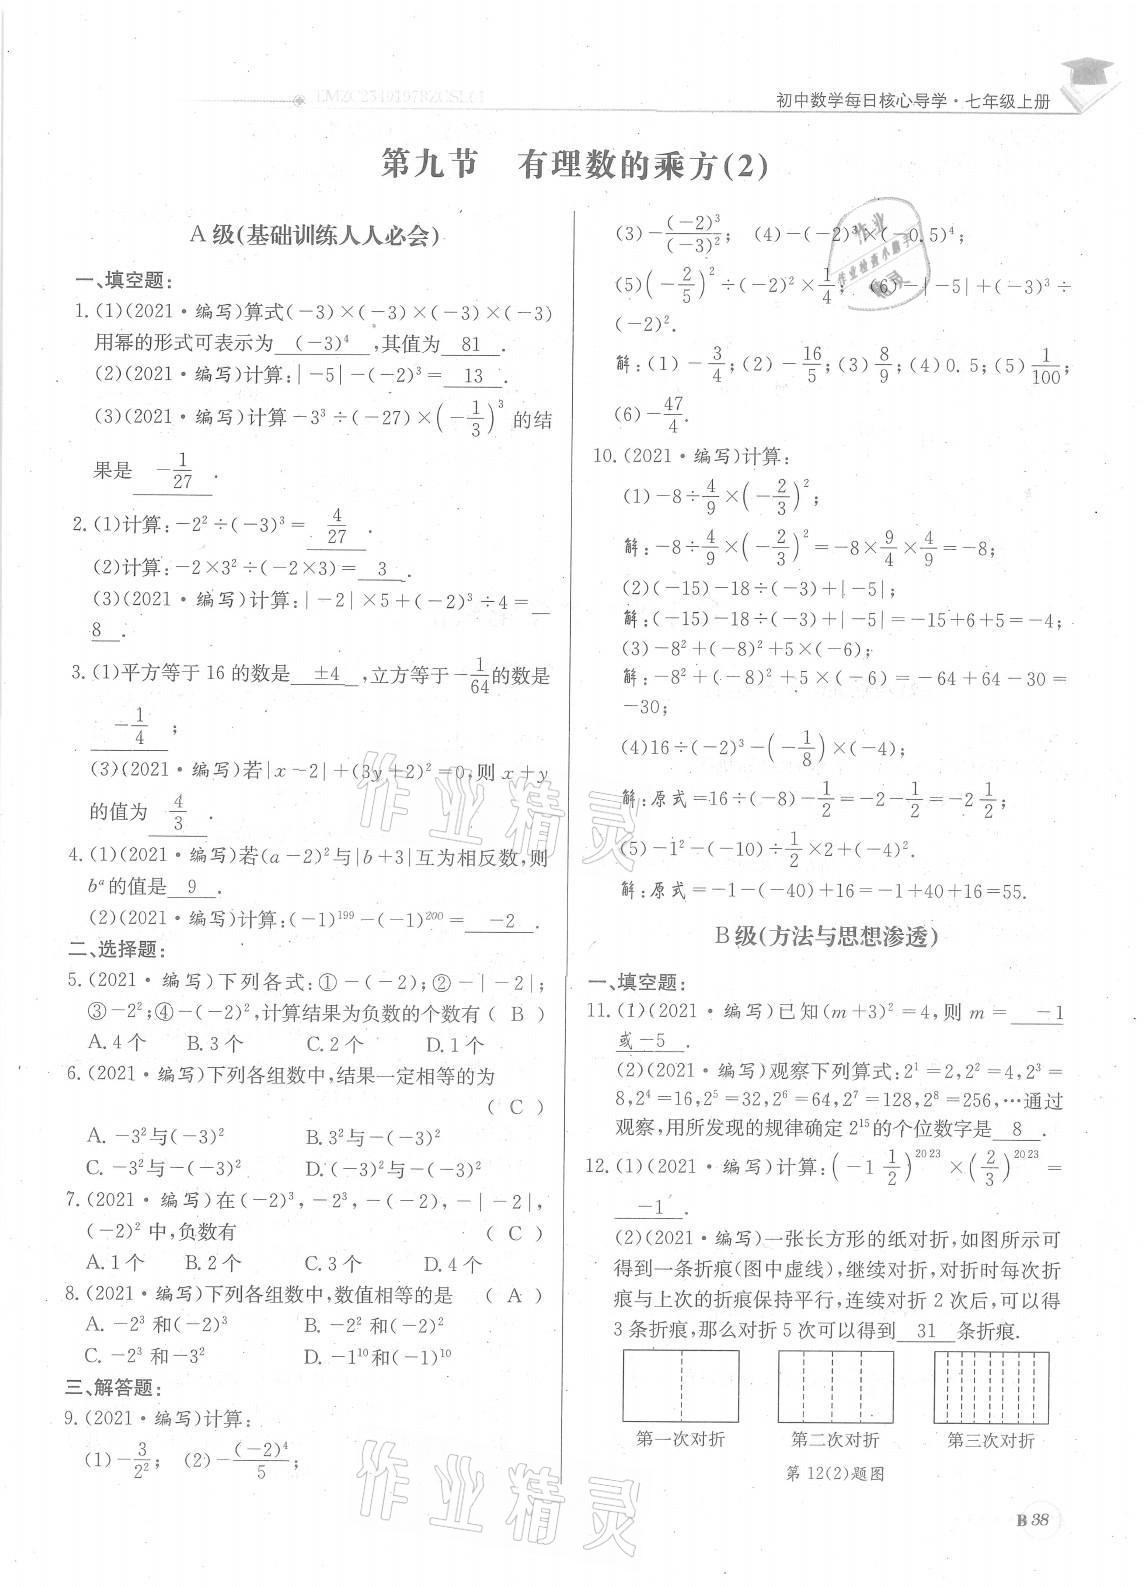 EMZC23491978ZCSL61
初中数学每日核心导学·七年级上册
第九节 有理数的乘方(2)
A级(基础训练人人必会)
一、填空题:
1.(1)(2021·编写)算式(-3)×(-3)×(-3)×(-3)
用幂的形式可表示为 (-3)⁴ ,其值为 81 .
(2)(2021·编写)计算:|-5|-(-2)³= 13 .
(3)(2021·编写)计算-3³÷(-27)×(-1/3)³ 的结
果是 -1/27 .
2.(1)计算:-2²÷(-3)³= 4/27 .
(2)计算:-2×3²÷(-2×3)= 3 .
(3)(2021·编写)计算:|-2|×5+(-2)³÷4=
8 .
3.(1)平方等于16的数是 ±4 ,立方等于-1/64的数是
-1/4 ;
(3)(2021·编写)若|x-2|+(3y+2)²=0,则x+y
的值为 4/3 .
4.(1)(2021·编写)若(a-2)²与|b+3|互为相反数,则
bᵃ的值是 9 .
(2)(2021·编写)计算:(-1)¹⁹⁹-(-1)²⁰⁰= -2 .
二、选择题:
5.(2021·编写)下列各式:①-(-2);②-|-2|;
③-2²;④-(-2)²,计算结果为负数的个数有 ( B )
A.4个 B.3个 C.2个 D.1个
6.(2021·编写)下列各组数中,结果一定相等的为
( C )
A. -3²与(-3)² B. 3²与-(-3)²
C. -3²与-(-3)² D.(-3)²与-(-3)²
7.(2021·编写)在(-2)³,-2³,-(-2),-|-2|,
(-2)²中,负数有 ( C )
A.1个 B.2个 C.3个 D.4个
8.(2021·编写)下列各组数中,数值相等的是 ( A )
A. -2³和(-2)³ B. -2²和(-2)²
C. -2³和-3² D. -1¹⁰和(-1)¹⁰
三、解答题:
9.(2021·编写)计算:
(1)-3/2²; (2)-(-2)⁴/5;
(3)-(-2)³/(-3)²; (4)-(-2)³×(-0.5)⁴;
(5)(-2/5)²÷(-2)²×1/4; (6)-|-5|+(-3)³÷
(-2)².
解:(1)-3/4;(2)-16/5;(3)8/9;(4)0.5;(5)1/100;
(6)-47/4.
10.(2021·编写)计算:
(1)-8÷4/9×(-2/3)²;
解:-8÷4/9×(-2/3)²=-8×9/4×4/9=-8;
(2)(-15)-18÷(-3)+|-5|;
解:(-15)-18÷(-3)+|-5|=-15+6+5=-4;
(3)-8²+(-8)²+5×(-6);
解:-8²+(-8)²+5×(-6)=-64+64-30=
-30;
(4)16÷(-2)³-(-1/8)×(-4);
解:原式=16÷(-8)-1/2=-2-1/2=-2 1/2;
(5)-1²-(-10)÷1/2×2+(-4)².
解:原式=-1-(-40)+16=-1+40+16=55.
B级(方法与思想渗透)
一、填空题:
11.(1)(2021·编写)已知(m+3)²=4,则m= -1
或-5 .
(2)(2021·编写)观察下列算式:2¹=2,2²=4,2³=
8,2⁴=16,2⁵=32,2⁶=64,2⁷=128,2⁸=256,…通过
观察,用所发现的规律确定2¹⁵的个位数字是 8 .
12.(1)(2021·编写)计算:(-1 1/2)²⁰²³×(2/3)²⁰²³=
-1 .
(2)(2021·编写)一张长方形的纸对折,如图所示可
得到一条折痕(图中虚线),继续对折,对折时每次折
痕与上次的折痕保持平行,连续对折2次后,可以得
3条折痕,那么对折5次可以得到 31 条折痕.
第一次对折 第二次对折 第三次对折
第12(2)题图
B 38
作业
作业检查小助手
精灵
作业精灵
作业精灵